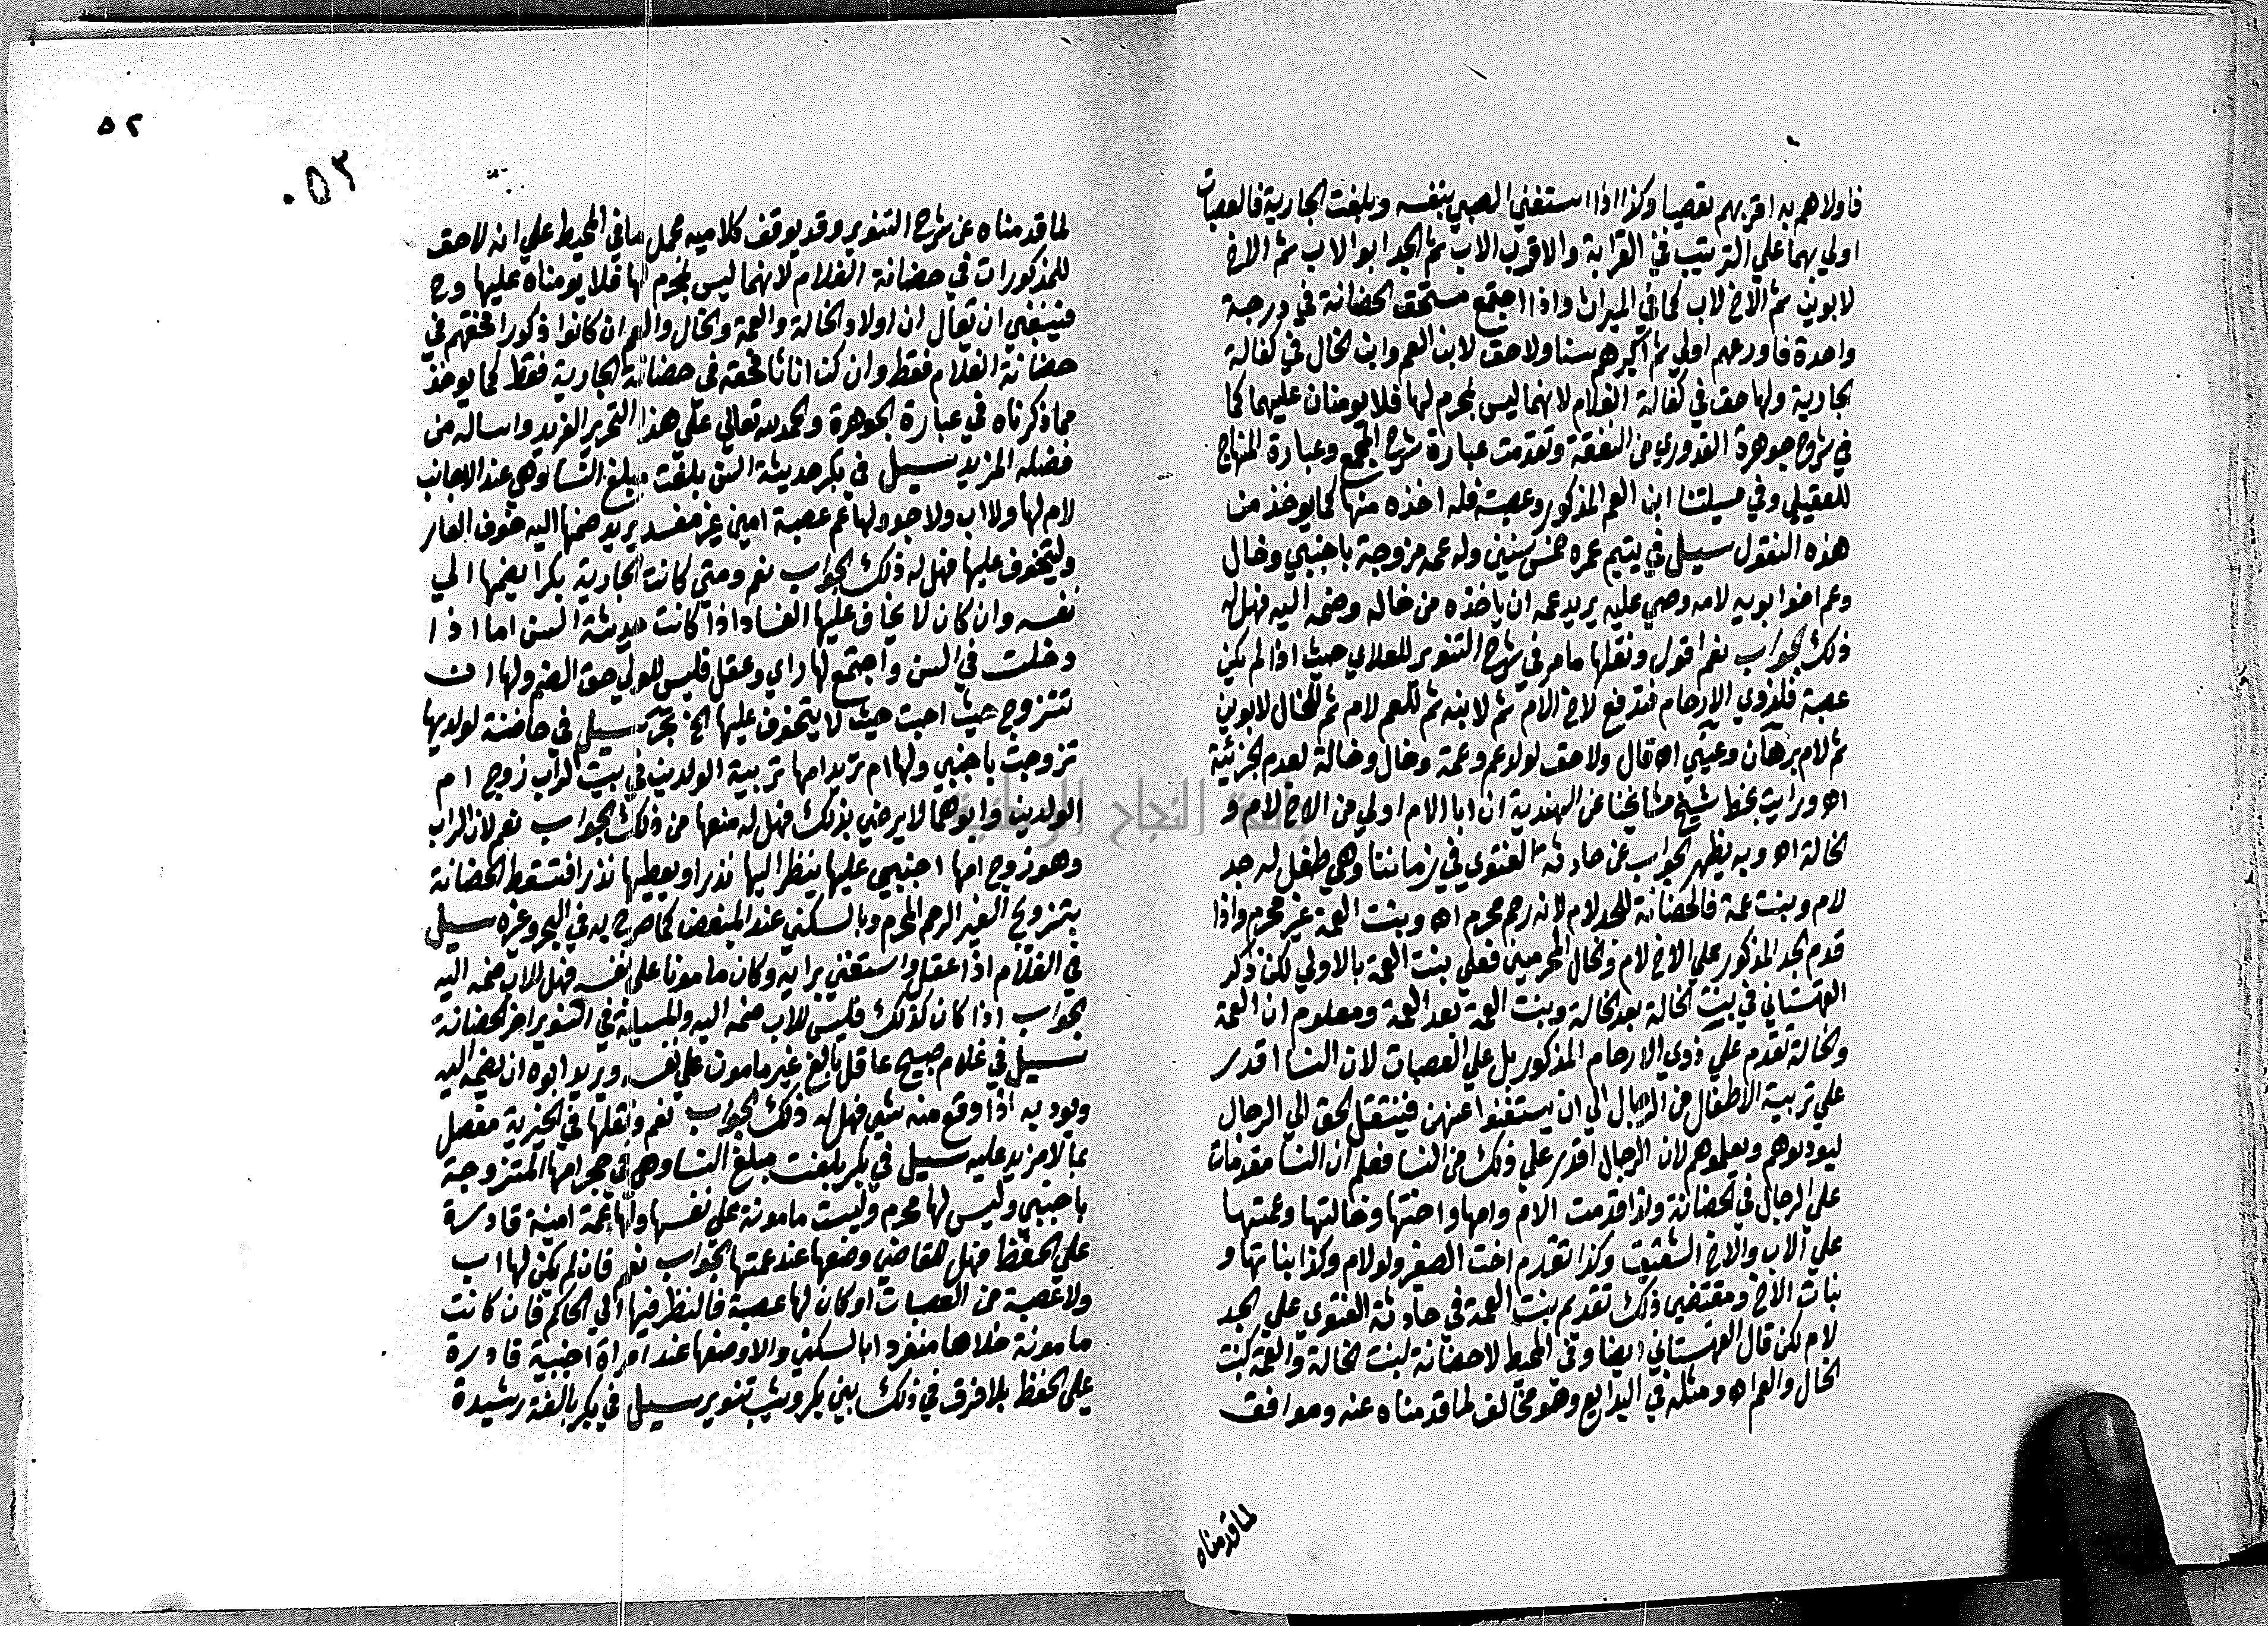 فاولاهم به اقربهم تعصيبا وكذا اذا استغني الصبي بنفسه وبلغت الجارية فالعصبات
اولي بهما علي الترتيب في القرابة والاقرب الاب ثم الجد ابوالاب ثم الاخ
لابوين ثم الاخ لاب كما في الميراث واذا اجتمع مستحقو الحضانة في درجة
واحدة فاورعهم اولي ثم اكبرهم سنا ولاحق لابن العم وابن الخال في كفالة
الجارية ولهما حق في كفالة الغلام لانهما ليس بمحرم لها فلا يومنان عليهما كما
في شرح جوهرة القدوري من النفقة وتقدمت عبارة شرح المجمع وعبارة المنهاج
للعقيلي وفي مسيلتنا ابن العم المذكور وعصبة فله اخذه منها كما يوخذ من
هذه النقول سيل في يتيم عمره خمس سنين وله عمه مزوجة باجنبي وخال
وعم اخوا بويه لامه وصي عليه يريد عمه ان ياخذه من خاله وضمه اليه فهل له
ذلك الجواب نعم اقول ونقلها مامر في شرح التنوير للعلاي حيث اذا لم يكن
عصبة فلذوي الارحام فتدفع لاخ لام ثم لابنه ثم للعم لام ثم للخال لابوين
ثم لام برهان وعيني اه قال ولاحق لولد عم وعمة وخال وخالة لعدم المحرمية
اه ورايت بخط شيخ مشايخنا عن الهندية ان ابا الام اولي من الاخ لام و
الخالة اه وبه يظهر الجواب عن حادثة الفتوي في زماننا وهي طفل له جد
لام وبنت عمة فالحضانة للجد لام لانه رحم محرم اه وبنت العمة غير محرم واذا
قدم الجد المذكور علي الاخ لام والخال المحرمين فعلي بنت العمة بالاولي لكن ذكر
القهستاني في بنت الخالة بعد الخالة وبنت العمة بعد العمة ومعلوم ان العمة
والخالة تقدم علي ذوي الارحام المذكور بل علي العصبات لان النسا اقدر
علي تربية الاطفال من الرجال الي ان يستغنوا عنهن فينتقل الحق الي الرجال
ليودبوهم ويعلموهم لان الرجال اقدر علي ذلك من النسا فعلم ان النسا مقدمات
علي الرجال في الحضانة ولذا قدمت الام وامها واختها وخالتها وعمتها
علي الاب والاخ الشقيق وكذا تقدم اخت الصغير ولو لام وكذا بناتها و
بنات الاخ ومقتضي ذلك تقديم بنت العمة في حادثة الفتوي علي الجد
لام لكن قال القهستاني ايضا وفي المحيط لاحضانة لبنت الخالة والعمة كبنت
الخال والعم اه ومثله في البدايع وهو مخالف لما قدمناه عنه وموافق
لما قدمناه
٥٢
٠٥٢
لما قدمناه عن شرح التنوير وقد يوفق كلاميه بحمل ما في المحيط علي انه لاحق
للمذكورات في حضانة الغلام لانهما ليس بمحرم لها فلا يومناه عليها وح
فينبغي ان تقال ان اولاد الخالة والعمة والخال والعم ان كانوا ذكورا فحقهم في
حضانة الغلام فقط وان كن اناثا فحقه في حضانة الجارية فقط كما يوخذ
مما ذكرناه في عبارة الجوهرة والحمد لله تعالي علي هذا التحرير الفريد واساله من
فضله المزيد سيل في بكر حديثة السن بلغت مبلغ النسا وهي عند الاجانب
لا ام لها ولا اب ولا جد ولها عم عصبة امين غير مفسد يريد ضمها اليه خوف العار
وليتخوف عليها فهل له ذلك الجواب نعم ومتي كانت الجارية بكرا يضمها الي
نفسه وان كان لا يخاف عليها الفساد اذا كانت حديثة السن اما اذا
دخلت في السن واجتمع لها راي وعقل فليس للولي حق الضم ولها ان
تتزوج حيث احبت حيث لا يتخوف عليها الخ بحر سيل في حاضنة لولديها
تزوجت باجنبي ولها ام تريد امها تربية الولدين في بيت الراب زوج ام
الولدين وابوهما لايرضي بذلك فهل له منعها من ذلك الجواب نعم لان الراب
وهو زوج امها اجنبي عليها ينظر اليها نذرا ويعطيها نذرا فتسقط الحضانة
بتزويج الغير الرحم المحرم وبالسكني عند المبغض كما صرح به في البحر وغيره سيل
في الغلام اذا عقل واستغني برايه وكان مامونا علي نفسه فهل للاب ضمه اليه
الجواب اذا كان كذلك فليس للاب ضمه اليه والمسيلة في التنوير اخر الحضانة
سيل في غلام صبيح عاقل بالغ غير مامون علي نفسه ويريد ابوه ان يضمه اليه
ويودبه اذا وقع منه شي فهل له ذلك الجواب نعم ونقلها في الخيرية مفصل
بما لامزيد عليه سيل في بكر بلغت مبلغ النسا وهي في حجر امها المتزوجة
باجنبي وليس لها محرم وليست مامونة علي نفسها ولها عمة امينة قادرة
علي الحفظ فهل للقاضي وضعها عند عمتها الجواب نعم فان لم يكن لها اب
ولا عصبة من العصبات او كان لها عصبة فالنظر فيها الي الحاكم فان كانت
مامونة خلاها منفردا بالسكني والا وضعها عند امراة اجنبية قادرة
علي الحفظ بلا فرق في ذلك بين بكر وثيب تنوير سيل في بكر بالغة رشيدة